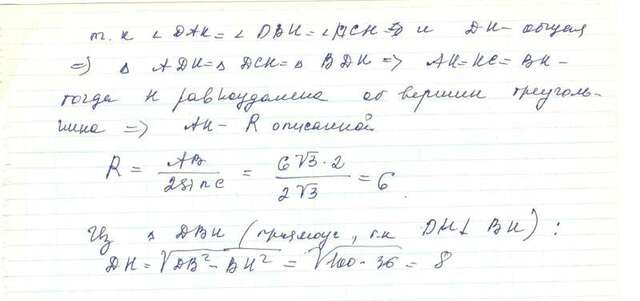 т.к ∠DAH=∠DBH=∠DCH и DH- общая
=> Δ ADH=Δ DCH=Δ BDH => AH=HC=BH-
тогда H равноудалена от вершин треуголь-
ника => AH- R описанной
R = AB / 2sin C = 6√3·2 / 2√3 = 6.
Из Δ DBH (прямоуг, т.к DH⊥BH):
DH=√DB²-BH² = √100-36 = 8